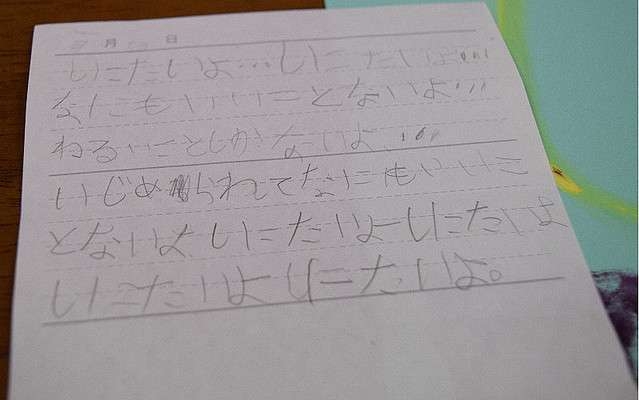 月 日
しにたいよ…しにたいよ…
なにもいいことないよ…
わるいことしかないよ…
いじめられてなにもいいこ
とないよしにたいよーしにたいよ
しにたいよしにたいよ。